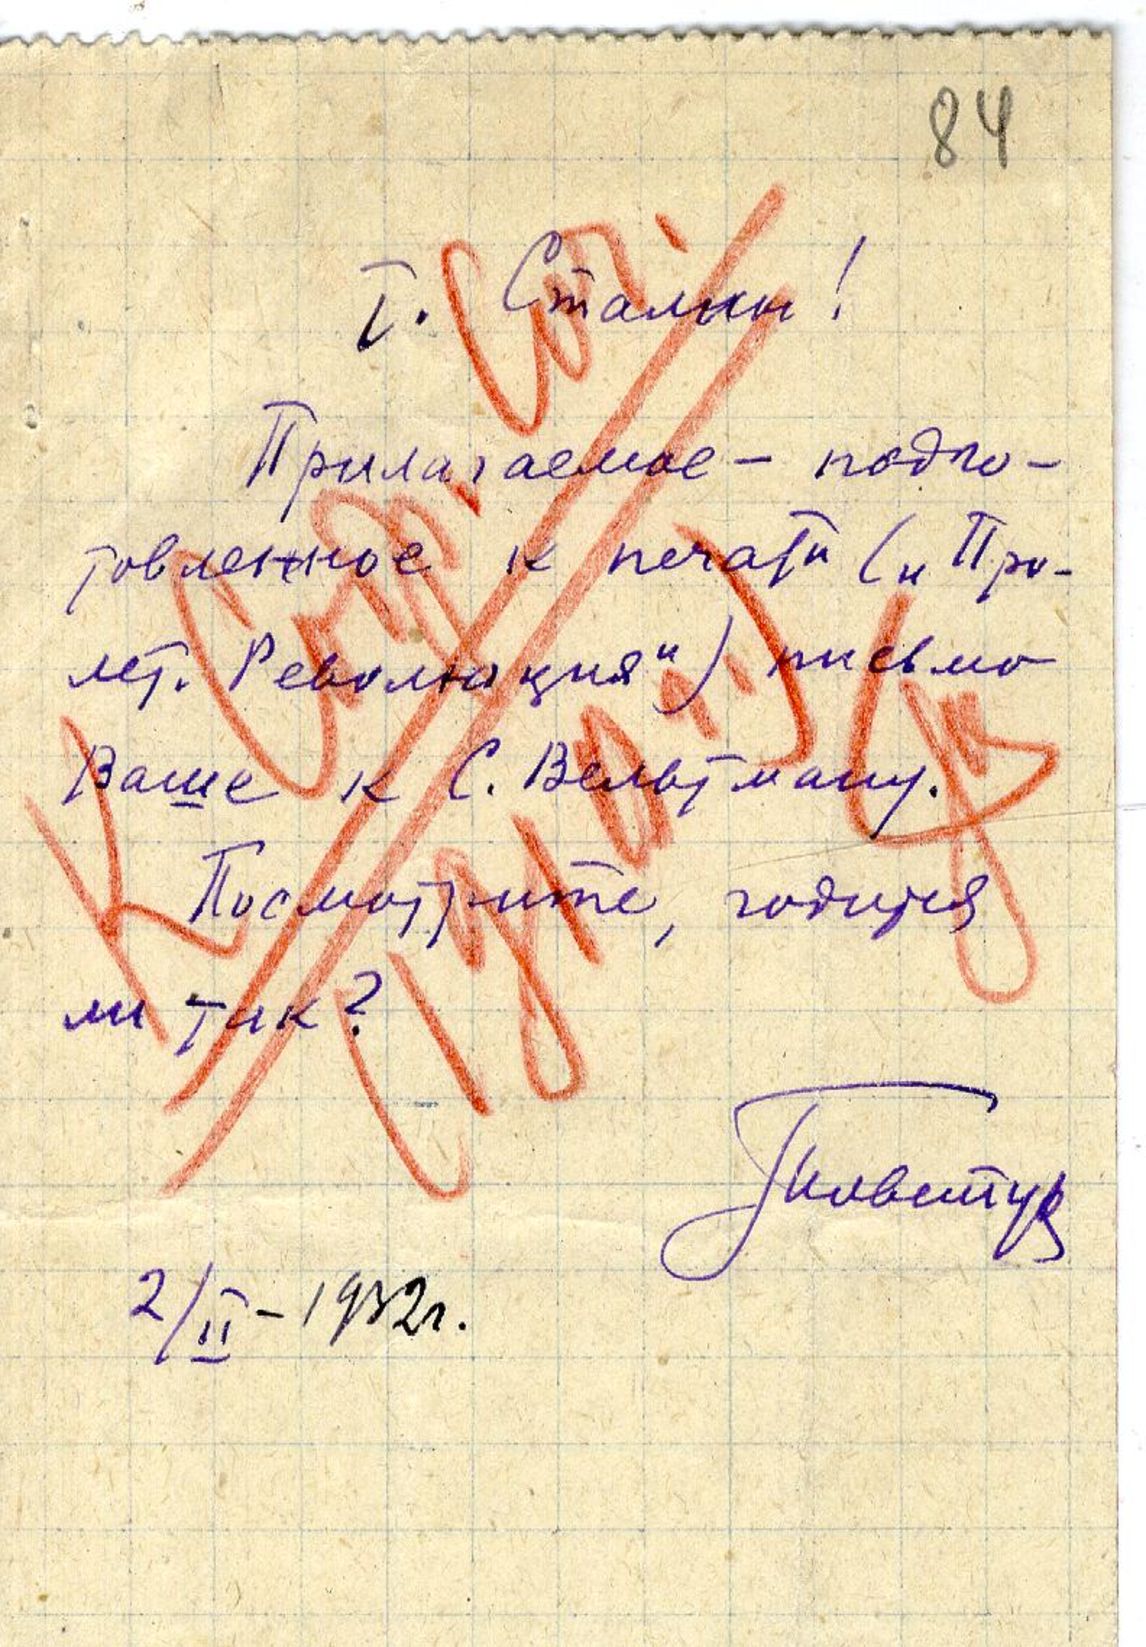 84
Т. Сталин!
Прилагаемое – подго-
товленное к печати („Про-
лет. Революция“) письмо
Ваше к С. Вельтману.
Посмотрите, годится
ли так?
2/II – 1932г.
К